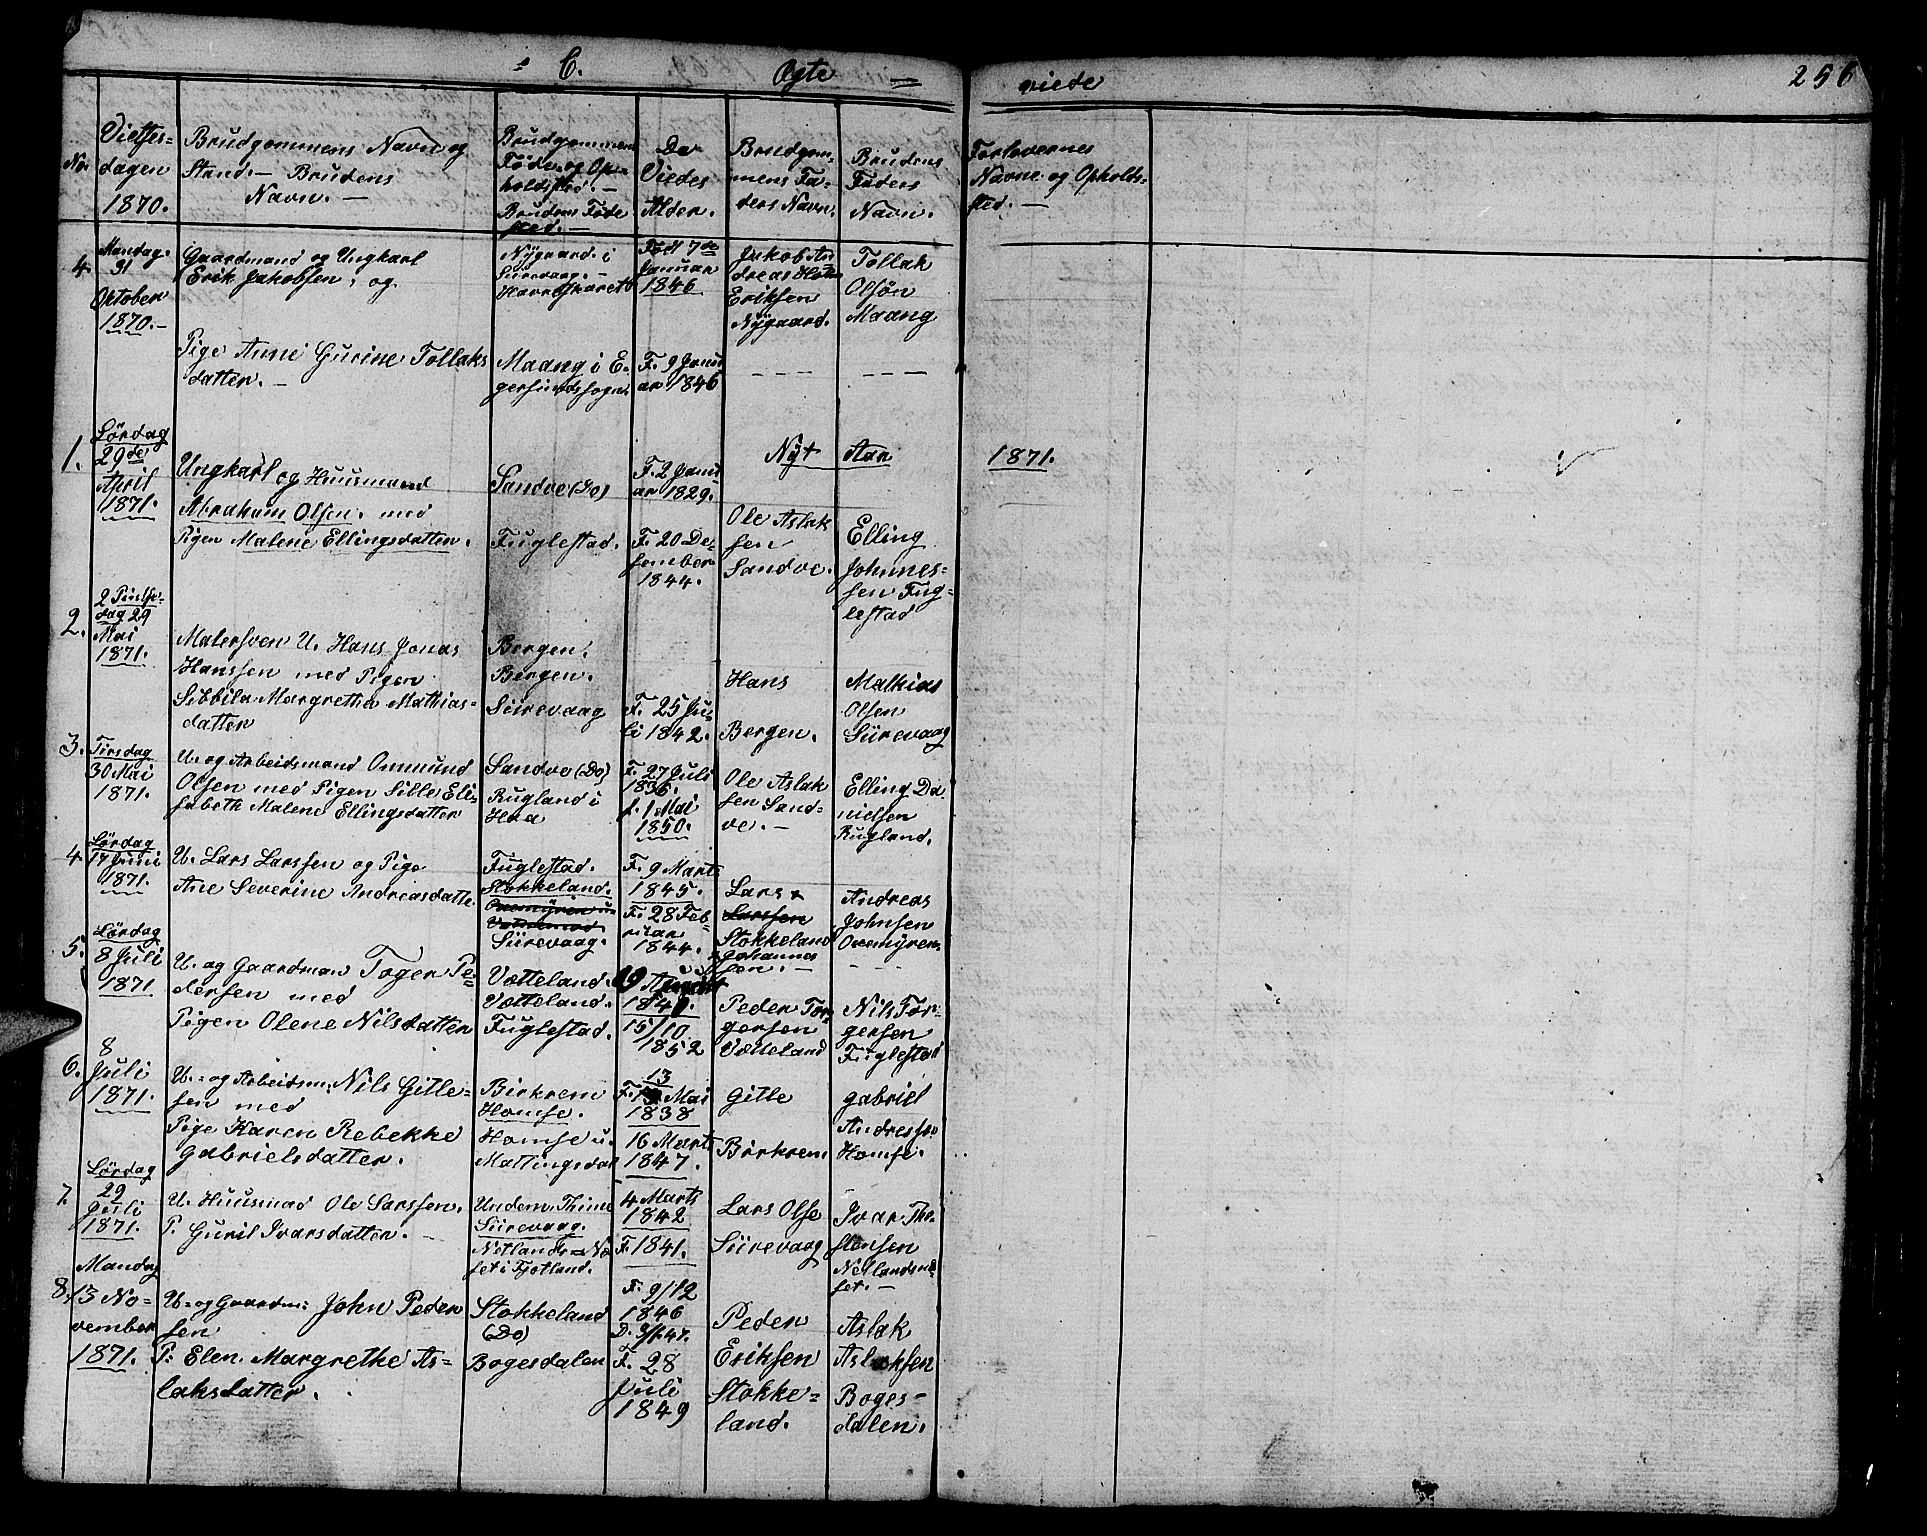 C. Ægte = viede 256
No.
Vielses=
dagen
1870.
Brudgommens Navn og
Stand. — Brudens
Navn. —
Brudgommens
Føde- og Op=
holdssted. —
Brudens Føde
sted. —
De
Viedes
Alder.
Brudgom-
mens Fa-
ders Navn.
Brudens
Faders
Navn.
Forlovernes
Navne og Opholds=
sted. —
4.
Mandag
31
Oktober
1870. —
Gaardmand og Ungkarl
Erik Jakobsen, og
Pige Anne Gurine Tollaks
datter. —
Nygaard i
Siirevaag. —
Maang i E-
gersundssogn.
Født 7de
Januar
1846
F. 9 Janu
ar 1846
Jakob An
dreas
Eriksen
Nygaard.
Tollak
Olsøn
Maang
Nyt Aar 1871.
1.
Lørdag
29de
April
1871.
Ungkarl og Huusmand
Abraham Olsen. med
Pigen Malene Ellingsdatter.
Sandve (Do)
Fuglestad.
F. 2 Janu
ar 1829.
F. 20 De-
sember
1844.
Ole Aslak
sen
Sandve.
Elling
Johnnes=
sen Fug=
lestad
2.
2 Pintse-
dag 29
Mai
1871.
Malersven U. Hans Jonas
Hanssen med Pigen
Sibbila Margrethe Mathias=
datter
Bergen.
Bergen.
Siirevaag
F. 25 Ju-
li 1842.
Hans
Bergen.
Mathias
Olsen
Siirevaag
3.
Tirsdag
30 Mai
1871.
U. og Arbeidsmand Ommund
Olsen med Pigen Sille Eli-
sabeth Malene Ellingsdatter
Sandve (Do)
Rugland i
Haa
F. 27 Juli
1836.
f. 1 Mai
1850.
Ole Aslak
sen Sand-
ve. —
Elling Da-
nielsen
Rugland.
4
Lørdag
17 Juni
1871.
U. Lars Larssen og Pige
Ane Severine Andreasdatte
Fuglestad.
Stokkeland.
Siirevaag.
F. 9 Marts
1845.
F. 28 Feb-
ruar
1844.
Lars
Larssen
Stokkeland
Johannes
sen. —
Andreas
Johnsen
Oremyren
5.
Lørdag
8 Juli
1871
U. og Gaardman Toger Pe=
dersen med
Pigen Olene Nilsdatter
Vætteland.
Vætteland.
Fuglestad.
19 August
1840.
15/10
1852
Peder Tor
gersen
Vætteland
Nils Tor-
gersen
Fuglestad
6.
8
Juli
1871.
U. og Arbeidsm: Nils Gitle=
sen med
Pige Karen Rebekke
Gabrielsdatter.
Birkrem
Homse.
Homse u.
Mattingsdal
13
F. Mai
1838
16 Marts
1847.
Gitle
Birkrem
Gabriel
Andressen
Homse.
7.
Lørdag
22
Juli
1871.
U. Huusmad Ole Larssen.
P. Guril Ivarsdatter. —
Undem. Thime
Siirevaag.
Netlands=Næ
set i Fjotland.
4 Marts
1842
F. 1841.
Lars Olse
Siirevaag
Ivar Tho-
stensen
Netlandsnæ
set. —
8.
Mandag
13 No-
vember
1871.
U. og Gaardm: John Peder
sen
P: Elen Margrethe As=
laksdatter.
Stokkeland
(Do)
Bogesdalen
F. 9/12
1846
D. 3/1 47.
F. 28
Juli
1849
Peder
Eriksen
Stokke=
land.
Aslak
Aslaksen
Boges-
dalen.